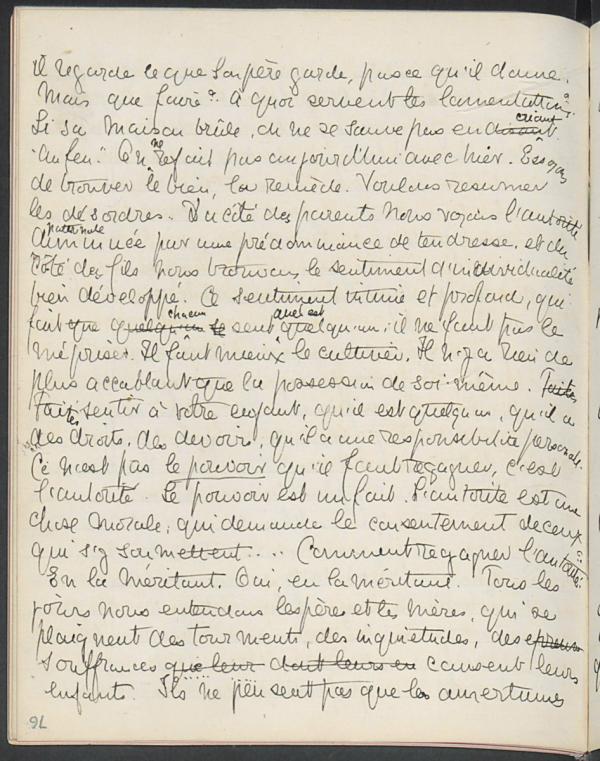 Il regarde ce que son père garde, pas ce qu'il donne.
Mais que faire? à quoi servent les lamentations?
Si sa maison brûle, on ne se sauve pas en disant criant
"au feu". On ne refait pas aujourd'hui avec hier. Essayons
de trouver le bien, la remède. Voulons résumer
les désordres. Du côté des parents nous voyons l'autorité
paternale
diminuée par une prédominance de tendresse, et du
côté des fils nous trouvons le sentiment d'individualité
bien développé. Ce sentiment intime et profond, qui
fait que quelqu'un chacun se sent quelqu'un; il ne faut pas le
mépriser. Il faut mieux le cultiver. Il n'y a rien de
plus accablant que la possession de soi-même. Faites
Faites sentir à votre enfant, qu'il est quelqu'un, qu'il a
des droits, des devoirs, qu'il a une responsibilité personale.
Ce n'est pas le pouvoir qu'il faut regagner, c'est
l'autorité. Le pouvoir est un fait. L'autorité est une
chose morale, qui demande le consentement de ceux
qui s'y soumettent... Comment regagner l'autorité?
En la méritant. Oui, en la méritant. Tous les
jours nous entendons les pères et les mères, qui se
plaignent des tourments, des inquiétudes, des
souffrances que leur dont leurs en causent leurs
enfants. Ils ne pensent pas que les amertumes
76